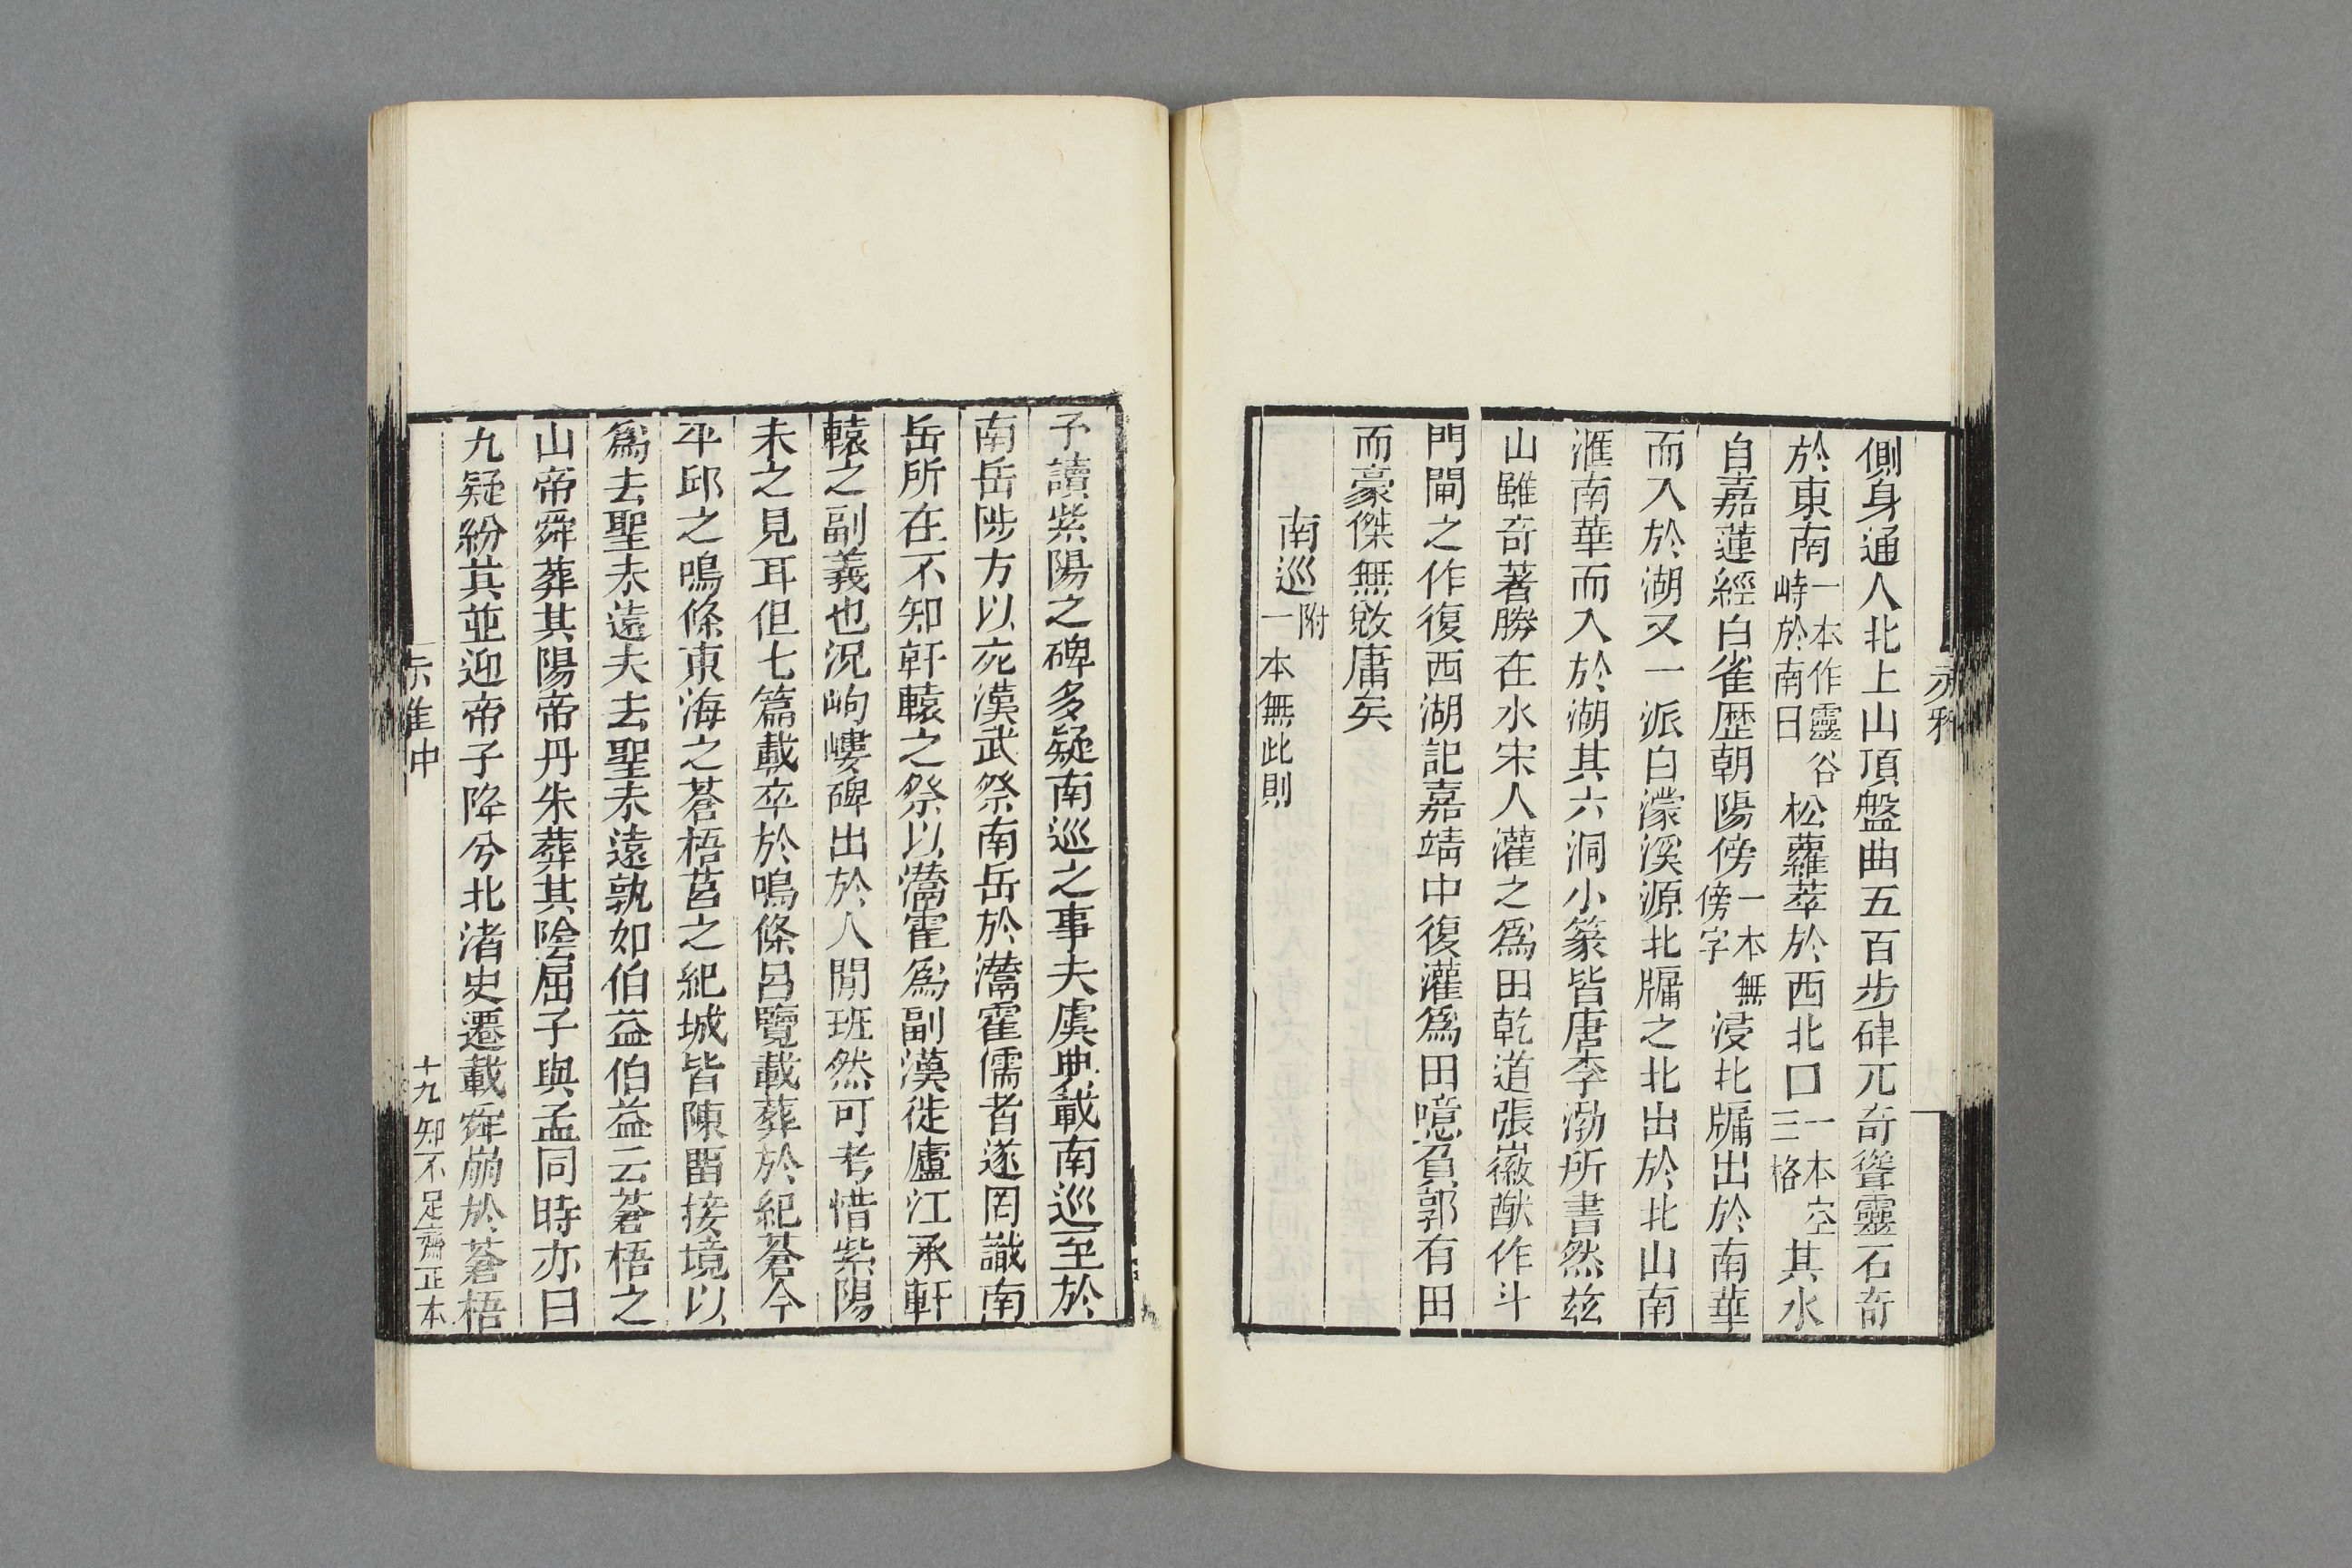 側身通人北上山頂盤曲五百步碑兀奇聳靈石奇
於東南一本作靈谷峙於南日松蘿萃於西北口一本空三格其水
自嘉蓮經白雀歷朝陽傍一本無傍字浸北牖出於南華
而入於湖又一派白濛溪源北牖之北出於北山南
滙南華而入於湖其六洞小篆皆唐李渤所書然玆
山雖奇著勝在水宋人灌之爲田乾道張𡽪猷作斗
門閘之作復西湖記嘉靖中復灌爲田噫負郭有田
而豪傑無敓庸矣
南巡附一本無此則
赤雅
予讀紫陽之碑多疑南巡之事夫虞典載南巡至於
南岳陟方以死漢武祭南岳於灊霍儒者遂罔識南
岳所在不知軒轅之祭以灊霍爲副漢徙廬江承軒
轅之副義也況岣嶁碑出於人閒班然可考惜紫陽
未之見耳但七篇載卒於鳴條呂覽載葬於紀蒼今
平邱之鳴條東海之蒼梧莒之紀城皆陳畱接境以
爲去聖未遠夫去聖未遠孰如伯益伯益云蒼梧之
山帝舜葬其陽帝丹朱葬其陰屈子與孟同時亦曰
九疑紛其並迎帝子降兮北渚史遷載舜崩於蒼梧
赤雅中
十九知不足齋正本